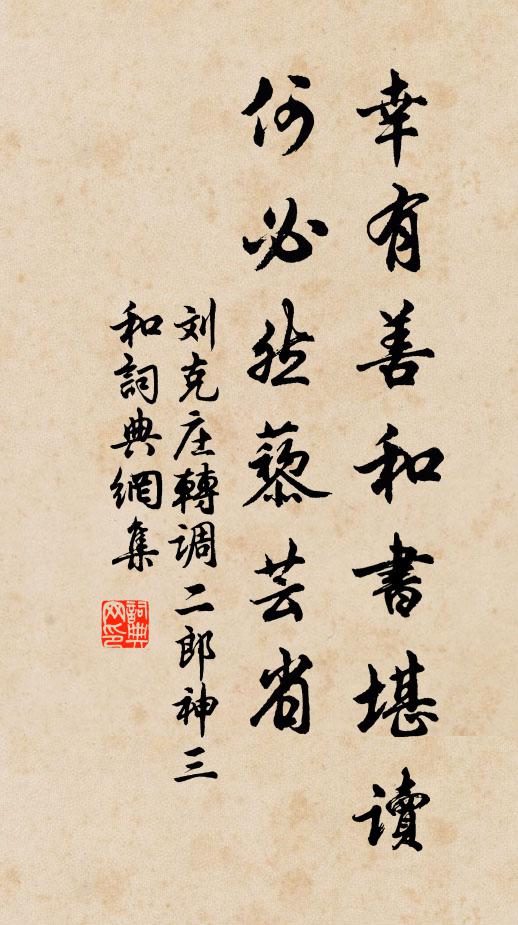 幸有善和書堪讀
何必然藜芸省
刘克庄轉调二郎神三
和詞典網集
詞典网印